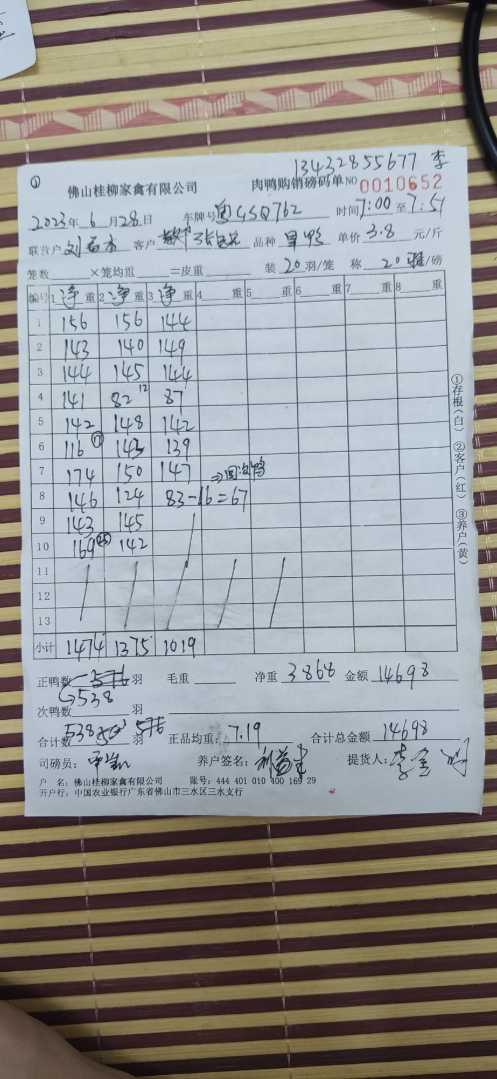 ① 13432855677 李
佛山桂柳家禽有限公司 肉鸭购销磅码单 NO 0010652
2023年 6月28日 车牌号 粤GSQ762 时间7:00至7:51
联营户 客户 品种 单价 3.8 元/斤
笼数 ×笼均重 =皮重 装 20 羽/笼 称 20 /磅
编号 1 净重 2 净重 3 净重 4 重 5 重 6 重 7 重 8 重
1 156 156 144
2 143 140 149
3 144 145 144
4 141 82 12 87
5 142 148 142
6 116 143 139
7 174 150 147
8 146 124 83-16=67
9 143 145
10 169 142
11
12
13
小计 1474 1375 1019
正鸭数 羽 毛重 净重 3868 金额 14698
538
次鸭数 羽
合计数 538 羽 正品均重: 7.19 合计总金额 14698
司磅员: 养户签名: 提货人:
户 名: 佛山桂柳家禽有限公司 账号: 444 401 010 400 169 29
开户行: 中国农业银行广东省佛山市三水区三水支行
①存根(白) ②客户(红) ③养户(黄)